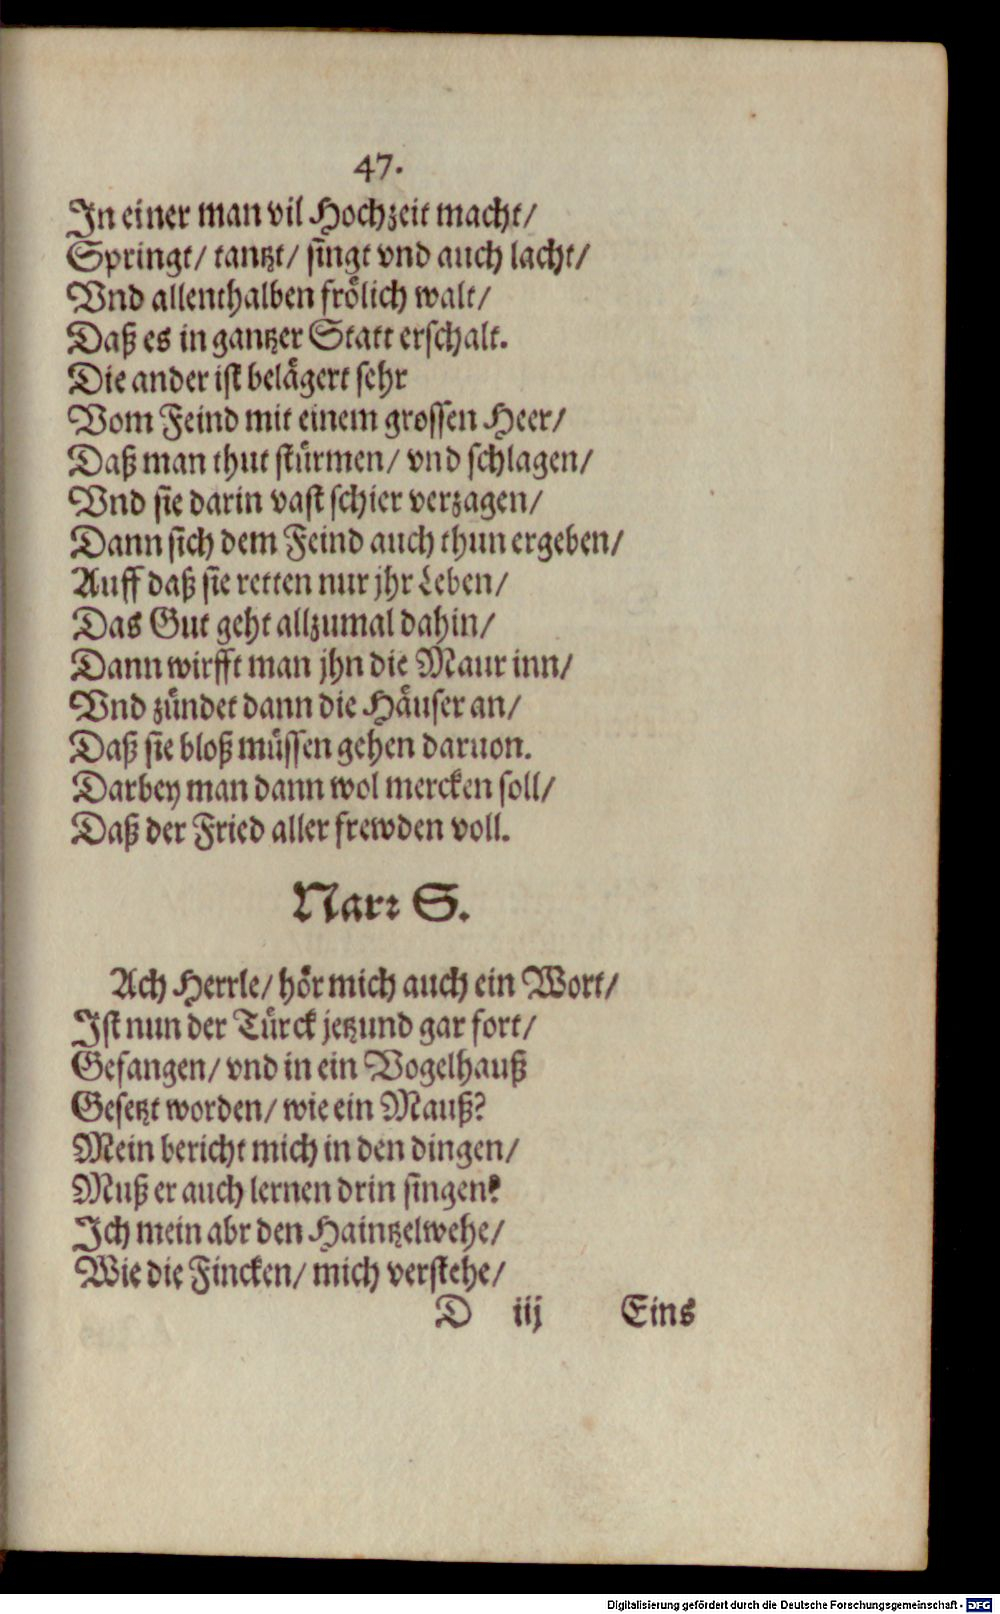 47.
In einer man vil Hochzeit macht/
Springt/ tantzt/ singt vnd auch lacht/
Vnd allenthalben frölich walt/
Daß es in gantzer Statt erschalt.
Die ander ist belägert sehr
Vom Feind mit einem grossen Heer/
Daß man thut stürmen/ vnd schlagen/
Vnd sie darin vast schier verzagen/
Dann sich dem Feind auch thun ergeben/
Auff daß sie retten nur jhr Leben/
Das Gut geht allzumal dahin/
Dann wirfft man jhn die Maur inn/
Vnd zündet dann die Häuser an/
Daß sie bloß müssen gehen daruon.
Darbey man dann wol mercken soll/
Daß der Fried aller frewden voll.
Narr S.
Ach Herrle/ hör mich auch ein Wort/
Ist nun der Türck jetzund gar fort/
Gefangen/ vnd in ein Vogelhauß
Gesetzt worden/ wie ein Mauß?
Mein bericht mich in den dingen/
Muß er auch lernen drin singen?
Ich mein abr den Haintzelwehe/
Wie die Fincken/ mich verstehe/
D iij Eins
Digitalisierung gefördert durch die Deutsche Forschungsgemeinschaft - DFG